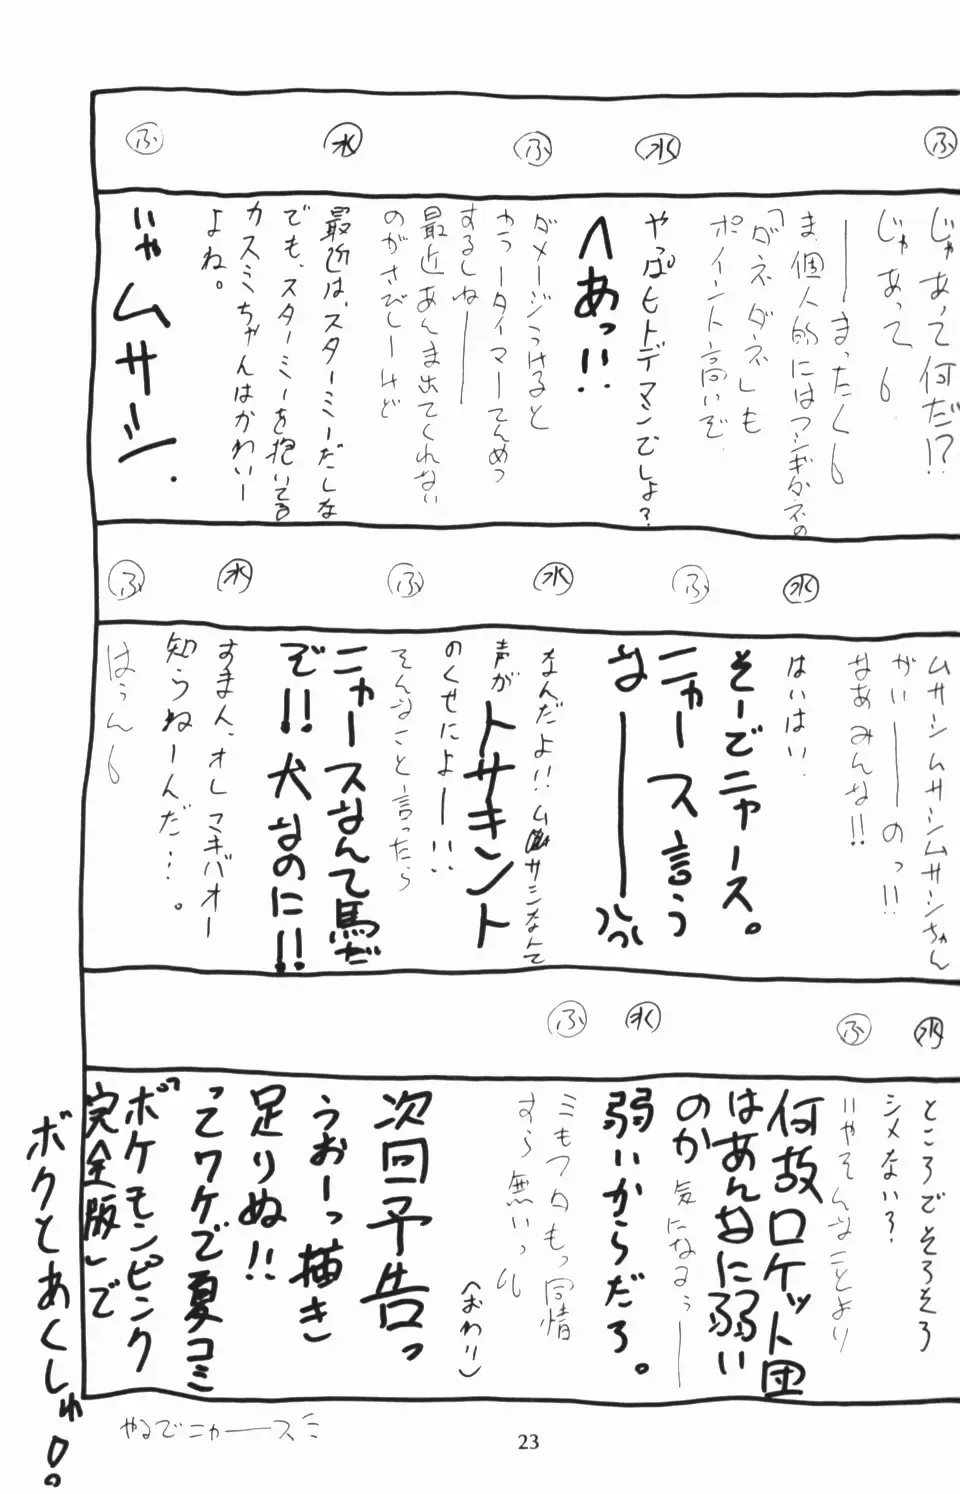 ふ
じゃあって何だ!?
じゃあって
──まったくも
ま、個人的にはフシギダネの
「ダネダネ」も
ポイント高いぞ
水
やっぱヒトデマンでしょ?
へあっ!!
ふ
ダメージうけると
カラータイマーてんめつ
するしね──
最近あんま出てくれない
のがさびしーけど
水
最近は、スターミーだしな
でも、スターミーを抱いてる
カスミちゃんはかわいー
よね。
ふ
いや ムサシ.
ムサシムサシムサシちゃん
がい──のっ!!
なあみんな!!
水
はいはい.
そーでニャース。
ふ
ニャース言う
な───っっ
水
なんだよ!!ムサシなんて
声がトサキント
のくせによー!!
ふ
そんなこと言ったら
ニャースなんて馬だ
ぞ!!犬なのに!!
水
すまん、オレマキバオー
知らねーんだ…。
ふ
はぅん
水
ところでそろそろ
シメない?
ふ
いやそんなことより
何故ロケット団
はあんなに弱い
のか気になるぅ──
水
弱いからだろ。
ふ
ミもフタもっ同情
すら無いっ
(おわり)
次回予告っ
うおーっ描き
足りぬ!!
ってワケで夏コミ
「ポケモンピンク
完全版」で
ボクとあくしゅ!。
やるでニャースミ
23